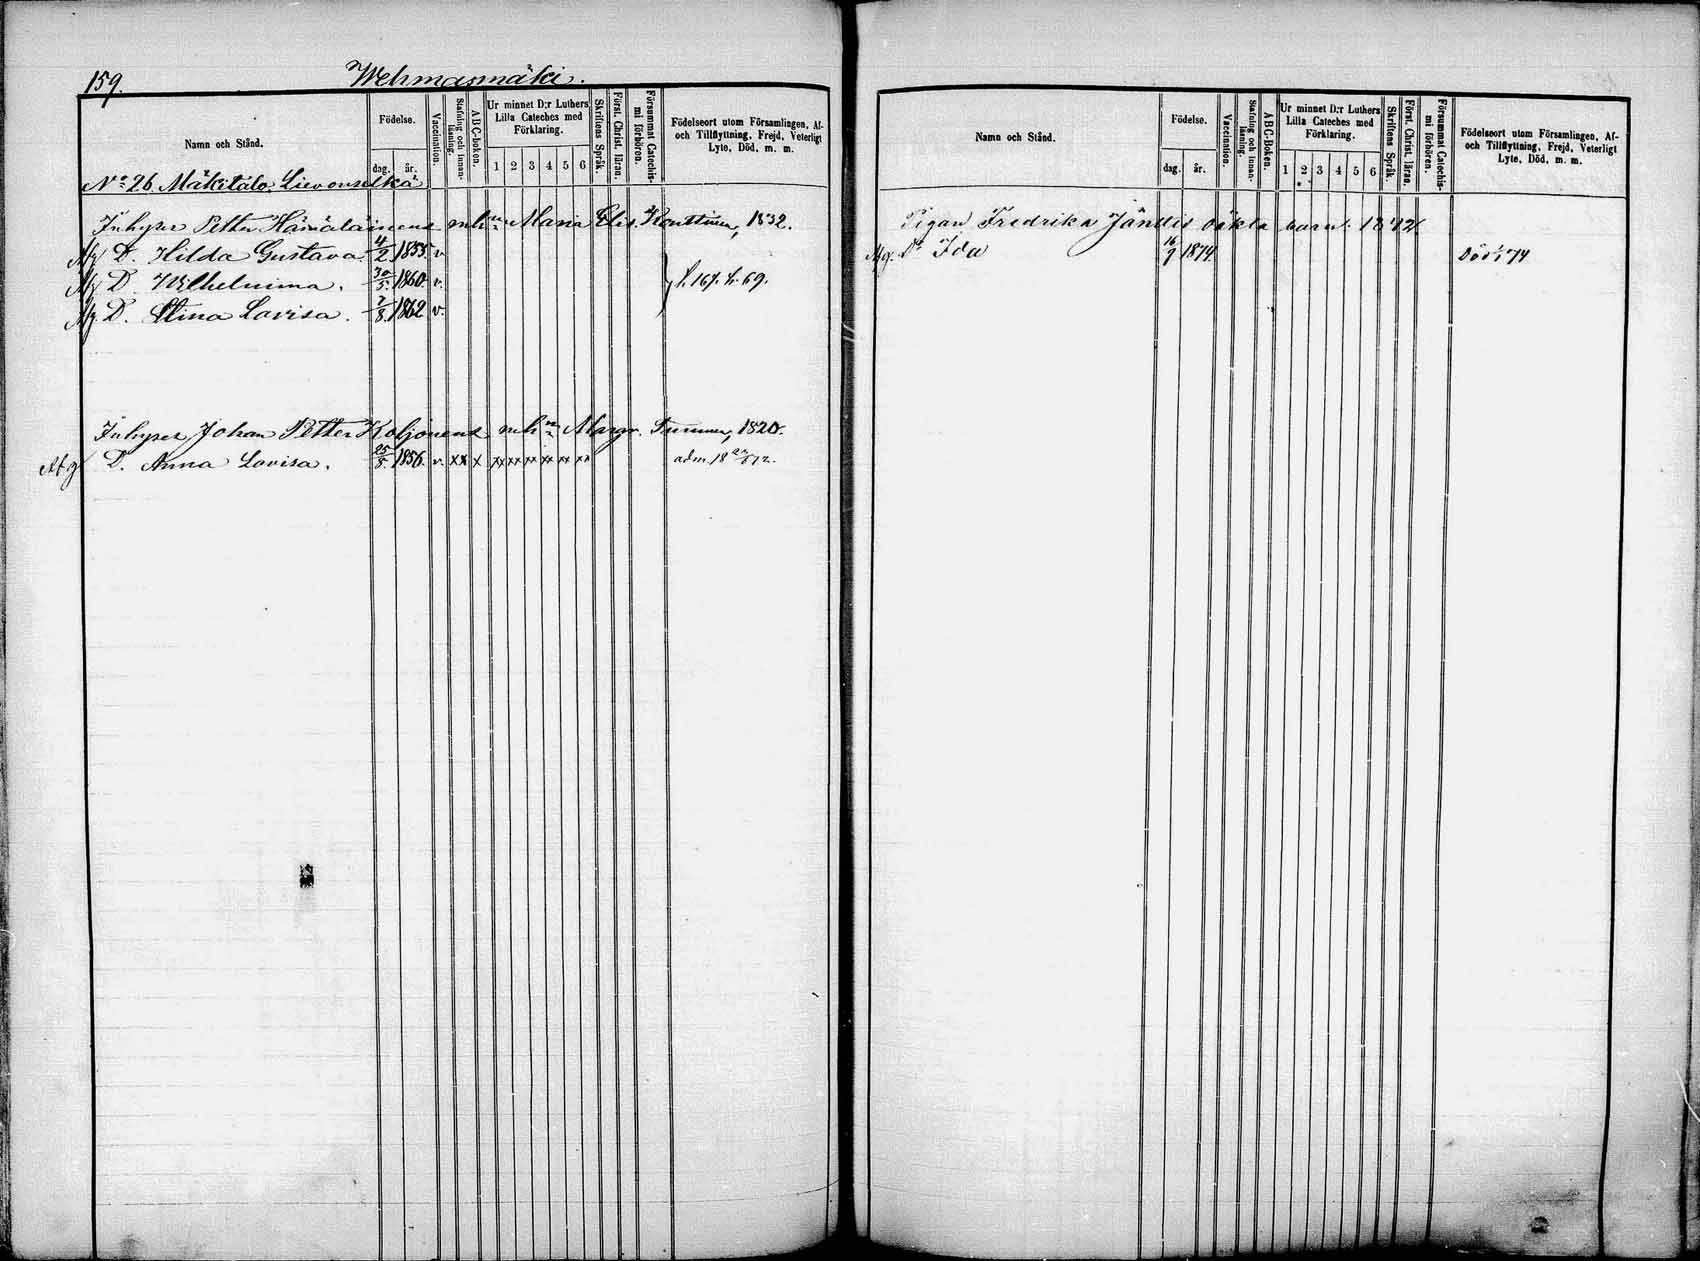 159.
Wehmasmäki.
Namn och Stånd.
Födelse.
dag. år.
Vaccination.
Stafning och innanläsning.
ABC-Boken.
Ur minnet D:r Luthers Lilla Cateches med Förklaring.
1 2 3 4 5 6
Skriftens Språk.
Först. Christ. läran.
Försummat Catechismi förhören.
Födelseort utom Församlingen, Af- och Tillflyttning, Frejd, Veterligt Lyte, Död, m. m.
No 26 Mäkitalo, Lievonselkä
Inhyses Petter Hämäläinens m h:n Maria Elis. Konttinen, 1832.
Afg D. Hilda Gustava. 4/2 1855. v
Afg D. Wilhelmina. 30/5. 1860. v. } f. 167. h. 69.
Afg D. Stina Lovisa. 7/8. 1862 v.
Inhyses Johan Petter Koljonens m h:n Margr. Tumner, 1820.
Afg D. Anna Lovisa. 25/8. 1856. v. xx x xx xx xx xx xx xx adm. 18
Namn och Stånd.
Födelse.
dag. år.
Vaccination.
Stafning och innanläsning.
ABC-Boken.
Ur minnet D:r Luthers Lilla Cateches med Förklaring.
1 2 3 4 5 6
Skriftens Språk.
Först. Christ. läran.
Försummat Catechismi förhören.
Födelseort utom Församlingen, Af- och Tillflyttning, Frejd, Veterligt Lyte, Död, m. m.
Pigan Fredrika Jänttis oäkta barn. 1842.
Afg. Dr Ida 16/9 1874. Död 74